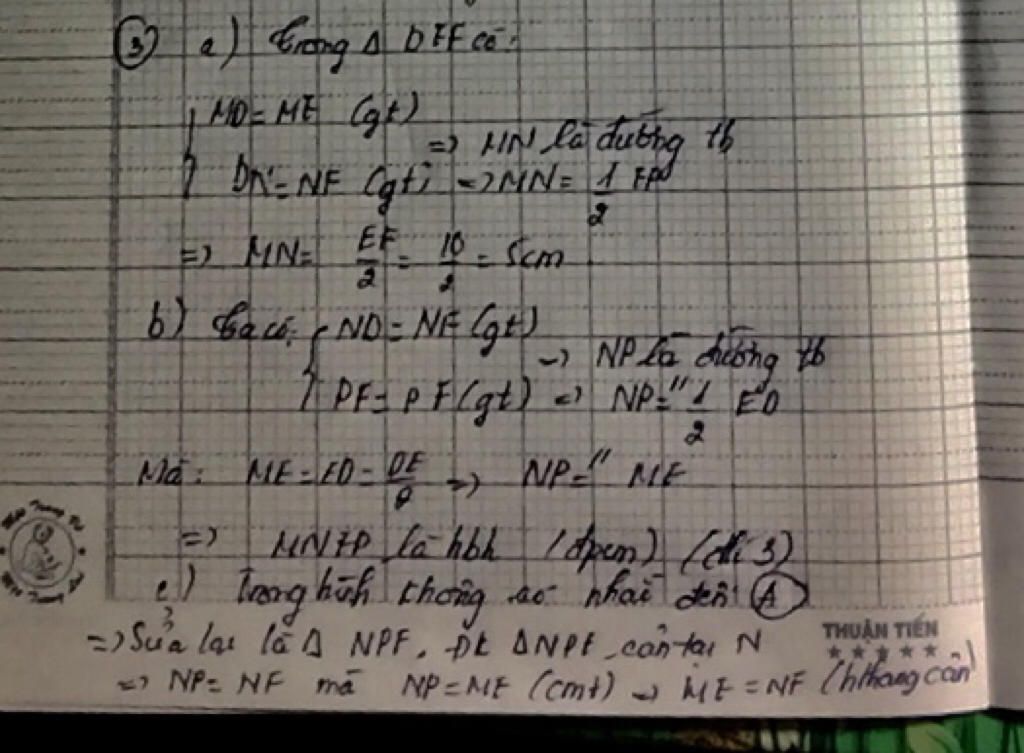 ③ a) trong Δ DEF có:
MD = ME (gt)
=> MN là đường tb
DN = NF (gt) => MN = 1/2 EF
=> MN = EF/2 = 10/2 = 5cm
b) ta có: ND = NF (gt)
=> NP là đường tb
PF = PF (gt) => NP =" 1/2 ED
Mà: ME = ED = DE/2 => NP =" ME
=> MNEP là hbh (đpcm) (dh 3)
c) Trong hình không có nhắc đến (A)
=> Sửa lại là Δ NPF. ĐK ΔNPF cân tại N
=> NP = NF mà NP = ME (cmt) => ME = NF (hthang cân)
THUẬN TIẾN